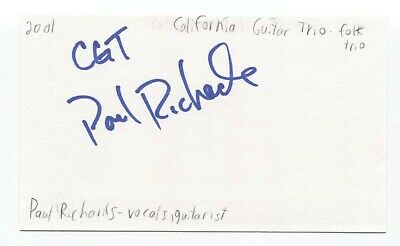 2001 California Guitar Trio - folk
trio
CGT
Paul Richards
Paul Richards - vocals, guitarist